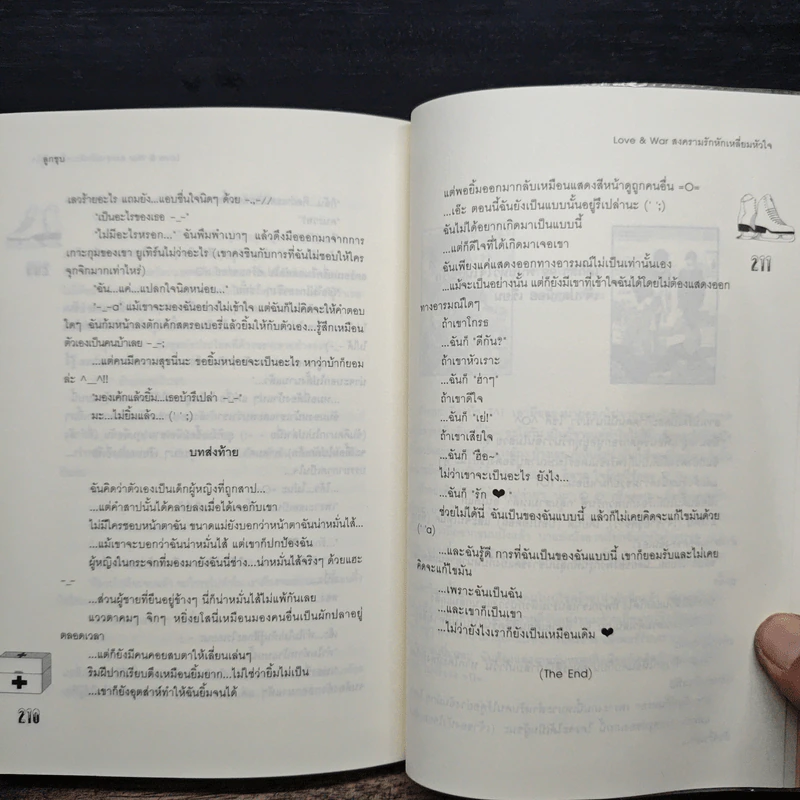 ลูกชุบ
เลวร้ายอะไร แถมยัง...แอบชื่นใจนิดๆ ด้วย -.,-//
"เป็นอะไรของเธอ -_-"
"ไม่มีอะไรหรอก..." ฉันพึมพำเบาๆ แล้วดึงมือออกมาจากการ
เกาะกุมของเขา ยูเทิร์นไม่ว่าอะไร (เขาคงชินกับการที่ฉันไม่ชอบให้ใคร
จุกจิกมากเท่าไหร่)
"ฉัน...แค่...แปลกใจนิดหน่อย..."
"-_-a" แม้เขาจะมองฉันอย่างไม่เข้าใจ แต่ฉันก็ไม่คิดจะให้คำตอบ
ใดๆ ฉันก้มหน้าลงตักเค้กสตรอเบอรี่แล้วยิ้มให้กับตัวเอง...รู้สึกเหมือน
ตัวเองเป็นคนบ้าเลย -_-;
...แต่คนมีความสุขนี่นะ ขอยิ้มหน่อยจะเป็นอะไร หาว่าบ้าก็ยอม
ล่ะ ^__^!!
"มองเค้กแล้วยิ้ม...เธอบ้ารึเปล่า -_-"
มะ...ไม่ยิ้มแล้ว... (' ' ;)
บทส่งท้าย
ฉันคิดว่าตัวเองเป็นเด็กผู้หญิงที่ถูกสาป...
...แต่คำสาปนั้นได้คลายลงเมื่อได้เจอกับเขา
ไม่มีใครชอบหน้าตาฉัน ขนาดแม่ยังบอกว่าหน้าตาฉันน่าหมั่นไส้...
...แม้เขาจะบอกว่าฉันน่าหมั่นไส้ แต่เขาก็ปกป้องฉัน
ผู้หญิงในกระจกที่มองมายังฉันนี่ช่าง...น่าหมั่นไส้จริงๆ ด้วยแฮะ
-_-
...ส่วนผู้ชายที่ยืนอยู่ข้างๆ นี่ก็น่าหมั่นไส้ไม่แพ้กันเลย
แววตาคมๆ จิกๆ หยิ่งยโสนี่เหมือนมองคนอื่นเป็นผักปลาอยู่
ตลอดเวลา
...แต่ก็ยังมีคนคอยสบตาให้เลี่ยนเล่นๆ
ริมฝีปากเรียบตึงเหมือนยิ้มยาก...ไม่ใช่ว่ายิ้มไม่เป็น
...เขาก็ยังอุตส่าห์ทำให้ฉันยิ้มจนได้
210
Love & War สงครามรักหักเหลี่ยมหัวใจ
แต่พอยิ้มออกมากลับเหมือนแสดงสีหน้าดูถูกคนอื่น =O=
...เอ๊ะ ตอนนี้ฉันยังเป็นแบบนั้นอยู่รึเปล่านะ (' ';)
ฉันไม่ได้อยากเกิดมาเป็นแบบนี้
...แต่ก็ดีใจที่ได้เกิดมาเจอเขา
ฉันเพียงแค่แสดงออกทางอารมณ์ไม่เป็นเท่านั้นเอง
...แม้จะเป็นอย่างนั้น แต่ก็ยังมีเขาที่เข้าใจฉันได้โดยไม่ต้องแสดงออก
ทางอารมณ์ใดๆ
ถ้าเขาโกรธ
...ฉันก็ "ตีกัน?"
ถ้าเขาหัวเราะ
...ฉันก็ "ฮ่าๆ"
ถ้าเขาดีใจ
...ฉันก็ "เย่!"
ถ้าเขาเสียใจ
...ฉันก็ "ฮือ~"
ไม่ว่าเขาจะเป็นอะไร ยังไง...
...ฉันก็ "รัก ❤ "
ช่วยไม่ได้นี่ ฉันเป็นของฉันแบบนี้ แล้วก็ไม่เคยคิดจะแก้ไขมันด้วย
(' 'a)
...และฉันรู้ดี การที่ฉันเป็นของฉันแบบนี้ เขาก็ยอมรับและไม่เคย
คิดจะแก้ไขมัน
...เพราะฉันเป็นฉัน
...และเขาก็เป็นเขา
...ไม่ว่ายังไงเราก็ยังเป็นเหมือนเดิม ❤
(The End)
211